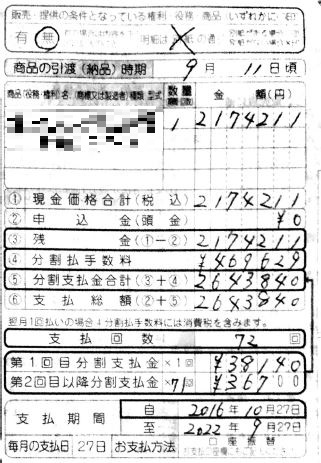 販売・提供の条件となっている権利・役務・商品 いずれかに 印
有 無
商品の引渡(納品)時期 9月 11日頃
商品(役務・権利)名 (商標又は製造者) 種類 型式 数量 金 額(円)
1 2174211
① 現金価格合計(税込) 2174211
② 申込金(頭金) ¥0
③ 残金(①-②) 2174211
④ 分割払手数料 ¥469629
⑤ 分割支払金合計(③+④) 2643840
⑥ 支払総額(②+⑤) 2643840
翌月1回払いの場合④分割手数料には消費税を含みます。
支払回数 72 回
第1回目分割支払金 ×1回 ¥38140
第2回目以降分割支払金 ×71回 ¥36700
支払期間 自 2016年10月27日
至 2022年9月27日
毎月の支払日 27日 お支払方法 口座振替